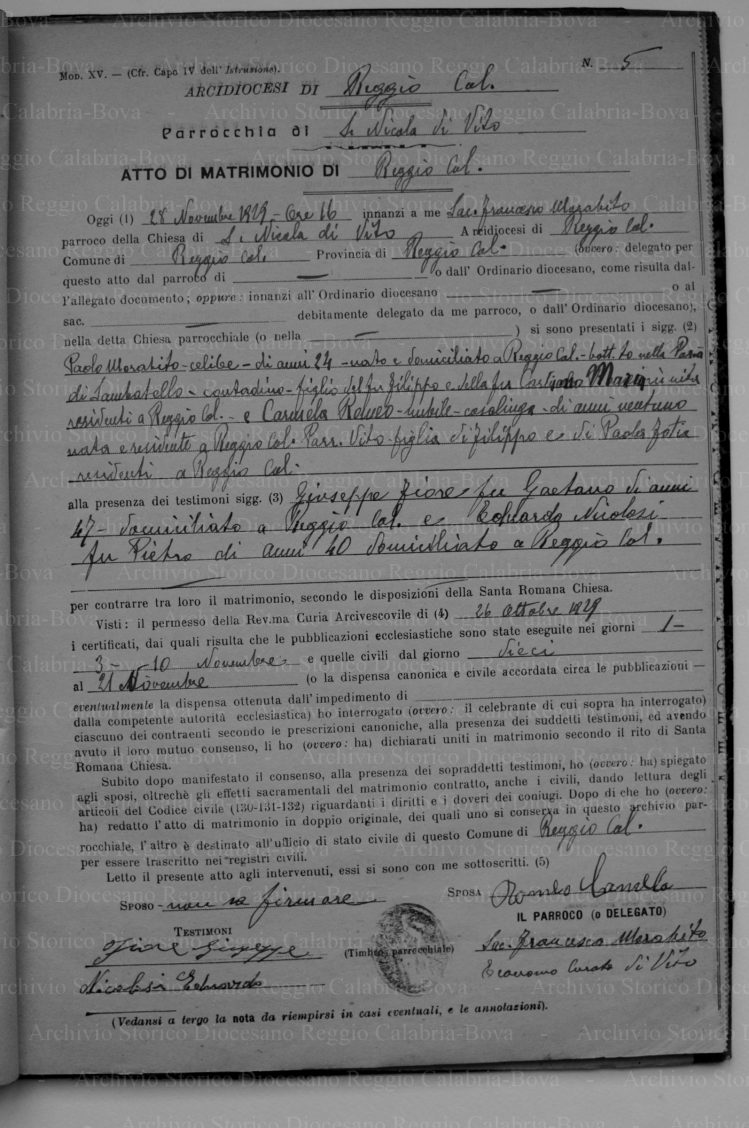 Mod. XV. — (Cfr. Capo IV dell' Istruzione).
N. 5
ARCIDIOCESI DI Reggio Cal.
Parrocchia di S. Nicola di Vito
ATTO DI MATRIMONIO DI Reggio Cal.
Oggi (1) 28 Novembre 1929 - Ore 16 innanzi a me Sac. Francesco Morabito
parroco della Chiesa di S. Nicola di Vito Arcidiocesi di Reggio Cal.
Comune di Reggio Cal. Provincia di Reggio Cal. (ovvero: delegato per
questo atto dal parroco di — o dall' Ordinario diocesano, come risulta dal-
l'allegato documento; oppure: innanzi all'Ordinario diocesano — o al
sac. — debitamente delegato da me parroco, o dall' Ordinario diocesano),
nella detta Chiesa parrocchiale (o nella — ) si sono presentati i sigg. (2)
Paolo Morabito - celibe - di anni 24 - nato e domiciliato a Reggio Cal. - batt.to nella Parr.
di Sambatello - contadino - figlio del fu Filippo e della fu Maria
residenti a Reggio Cal. - e Carmela Romeo - nubile - casalinga - di anni ventuno
nata e residente a Reggio Cal. Parr. Vito - figlia di Filippo e di Paola Zotia
residenti a Reggio Cal.
alla presenza dei testimoni sigg. (3) Giuseppe Fiore fu Gaetano di anni
47 - domiciliato a Reggio Cal. e Edoardo Nicolosi
fu Pietro di anni 40 domiciliato a Reggio Cal.
per contrarre tra loro il matrimonio, secondo le disposizioni della Santa Romana Chiesa.
Visti: il permesso della Rev.ma Curia Arcivescovile di (4) 26 Ottobre 1929
i certificati, dai quali risulta che le pubblicazioni ecclesiastiche sono state eseguite nei giorni 1-
3 - 10 Novembre e quelle civili dal giorno dieci
al 21 Novembre (o la dispensa canonica e civile accordata circa le pubblicazioni —
eventualmente la dispensa ottenuta dall'impedimento di
dalla competente autorità ecclesiastica) ho interrogato (ovvero: il celebrante di cui sopra ha interrogato)
ciascuno dei contraenti secondo le prescrizioni canoniche, alla presenza dei suddetti testimoni, ed avendo
avuto il loro mutuo consenso, li ho (ovvero: ha) dichiarati uniti in matrimonio secondo il rito di Santa
Romana Chiesa.
Subito dopo manifestato il consenso, alla presenza dei sopraddetti testimoni, ho (ovvero: ha) spiegato
agli sposi, oltrechè gli effetti sacramentali del matrimonio contratto, anche i civili, dando lettura degli
articoli del Codice civile (130-131-132) riguardanti i diritti e i doveri dei coniugi. Dopo di che ho (ovvero:
ha) redatto l'atto di matrimonio in doppio originale, dei quali uno si conserva in questo archivio par-
rocchiale, l'altro è destinato all'ufficio di stato civile di questo Comune di Reggio Cal.
per essere trascritto nei registri civili.
Letto il presente atto agli intervenuti, essi si sono con me sottoscritti. (5)
SPOSO - non sa firmare SPOSA Romeo Camella
TESTIMONI IL PARROCO (o DELEGATO)
Fiore Giuseppe (Timbro parrocchiale) Sac. Francesco Morabito
Nicolosi Edoardo Economo Curato di Vito
(Vedansi a tergo la nota da riempirsi in casi eventuali, e le annotazioni).
Archivio Storico Diocesano Reggio Calabria-Bova